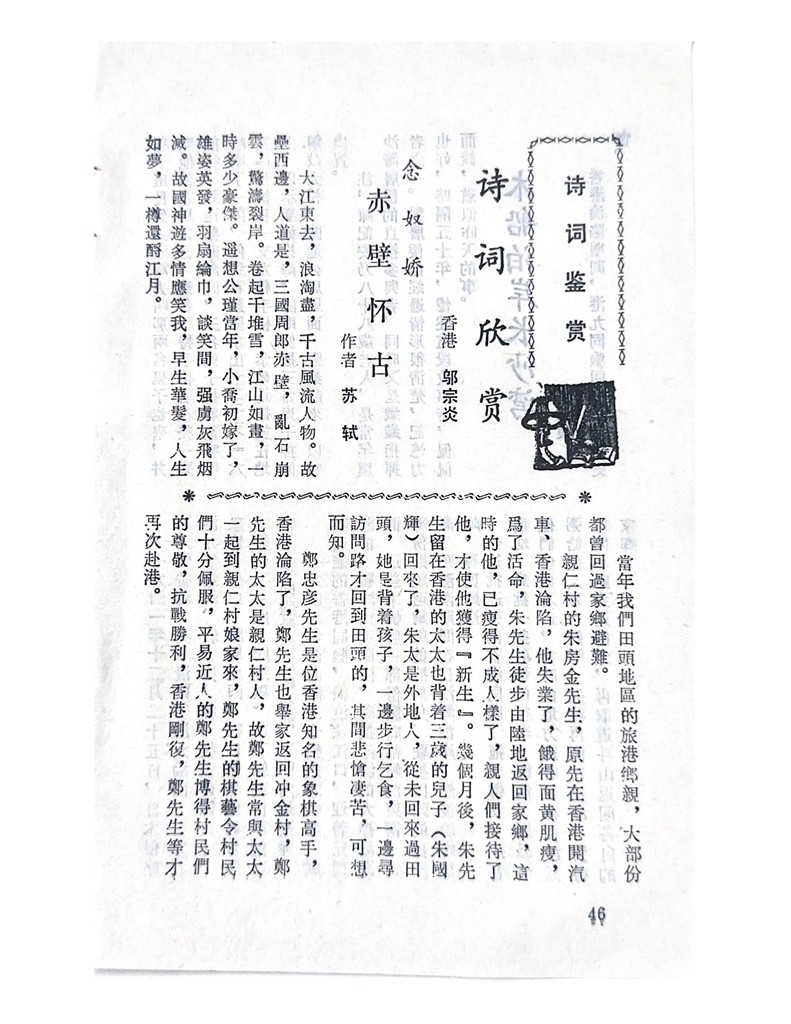 诗词鉴赏
诗词欣赏
香港 邬宗炎
念奴娇
赤壁怀古
作者 苏轼
大江東去，浪淘盡，千古風流人物。故
壘西邊，人道是，三國周郎赤壁，亂石崩
雲，驚濤裂岸。卷起千堆雪，江山如畫，一
時多少豪傑。遥想公瑾當年，小喬初嫁了，
雄姿英發，羽扇綸巾，談笑間，强虜灰飛烟
滅。故國神遊多情應笑我，早生華髮，人生
如夢，一樽還酹江月。
當年我們田頭地區的旅港鄉親，大部份
都曾回過家鄉避難。
親仁村的朱房金先生，原先在香港開汽
車、香港淪陷，他失業了，餓得面黄肌瘦，
爲了活命，朱先生徒步由陸地返回家鄉，這
時的他，已瘦得不成人樣了，親人們接待了
他，才使他獲得『新生』。幾個月後，朱先
生留在香港的太太也背着三歲的兒子（朱國
輝）回來了，朱太是外地人，從未回來過田
頭，她是背着孩子，一邊步行乞食，一邊尋
訪問路才回到田頭的，其間悲愴凄苦，可想
而知。
鄭忠彦先生是位香港知名的象棋高手，
香港淪陷了，鄭先生也舉家返回冲金村，鄭
先生的太太是親仁村人。故鄭先生常與太太
一起到親仁村娘家來，鄭先生的棋藝令村民
們十分佩服，平易近人的鄭先生博得村民們
的尊敬，抗戰勝利，香港剛復，鄭先生等才
再次赴港。
46